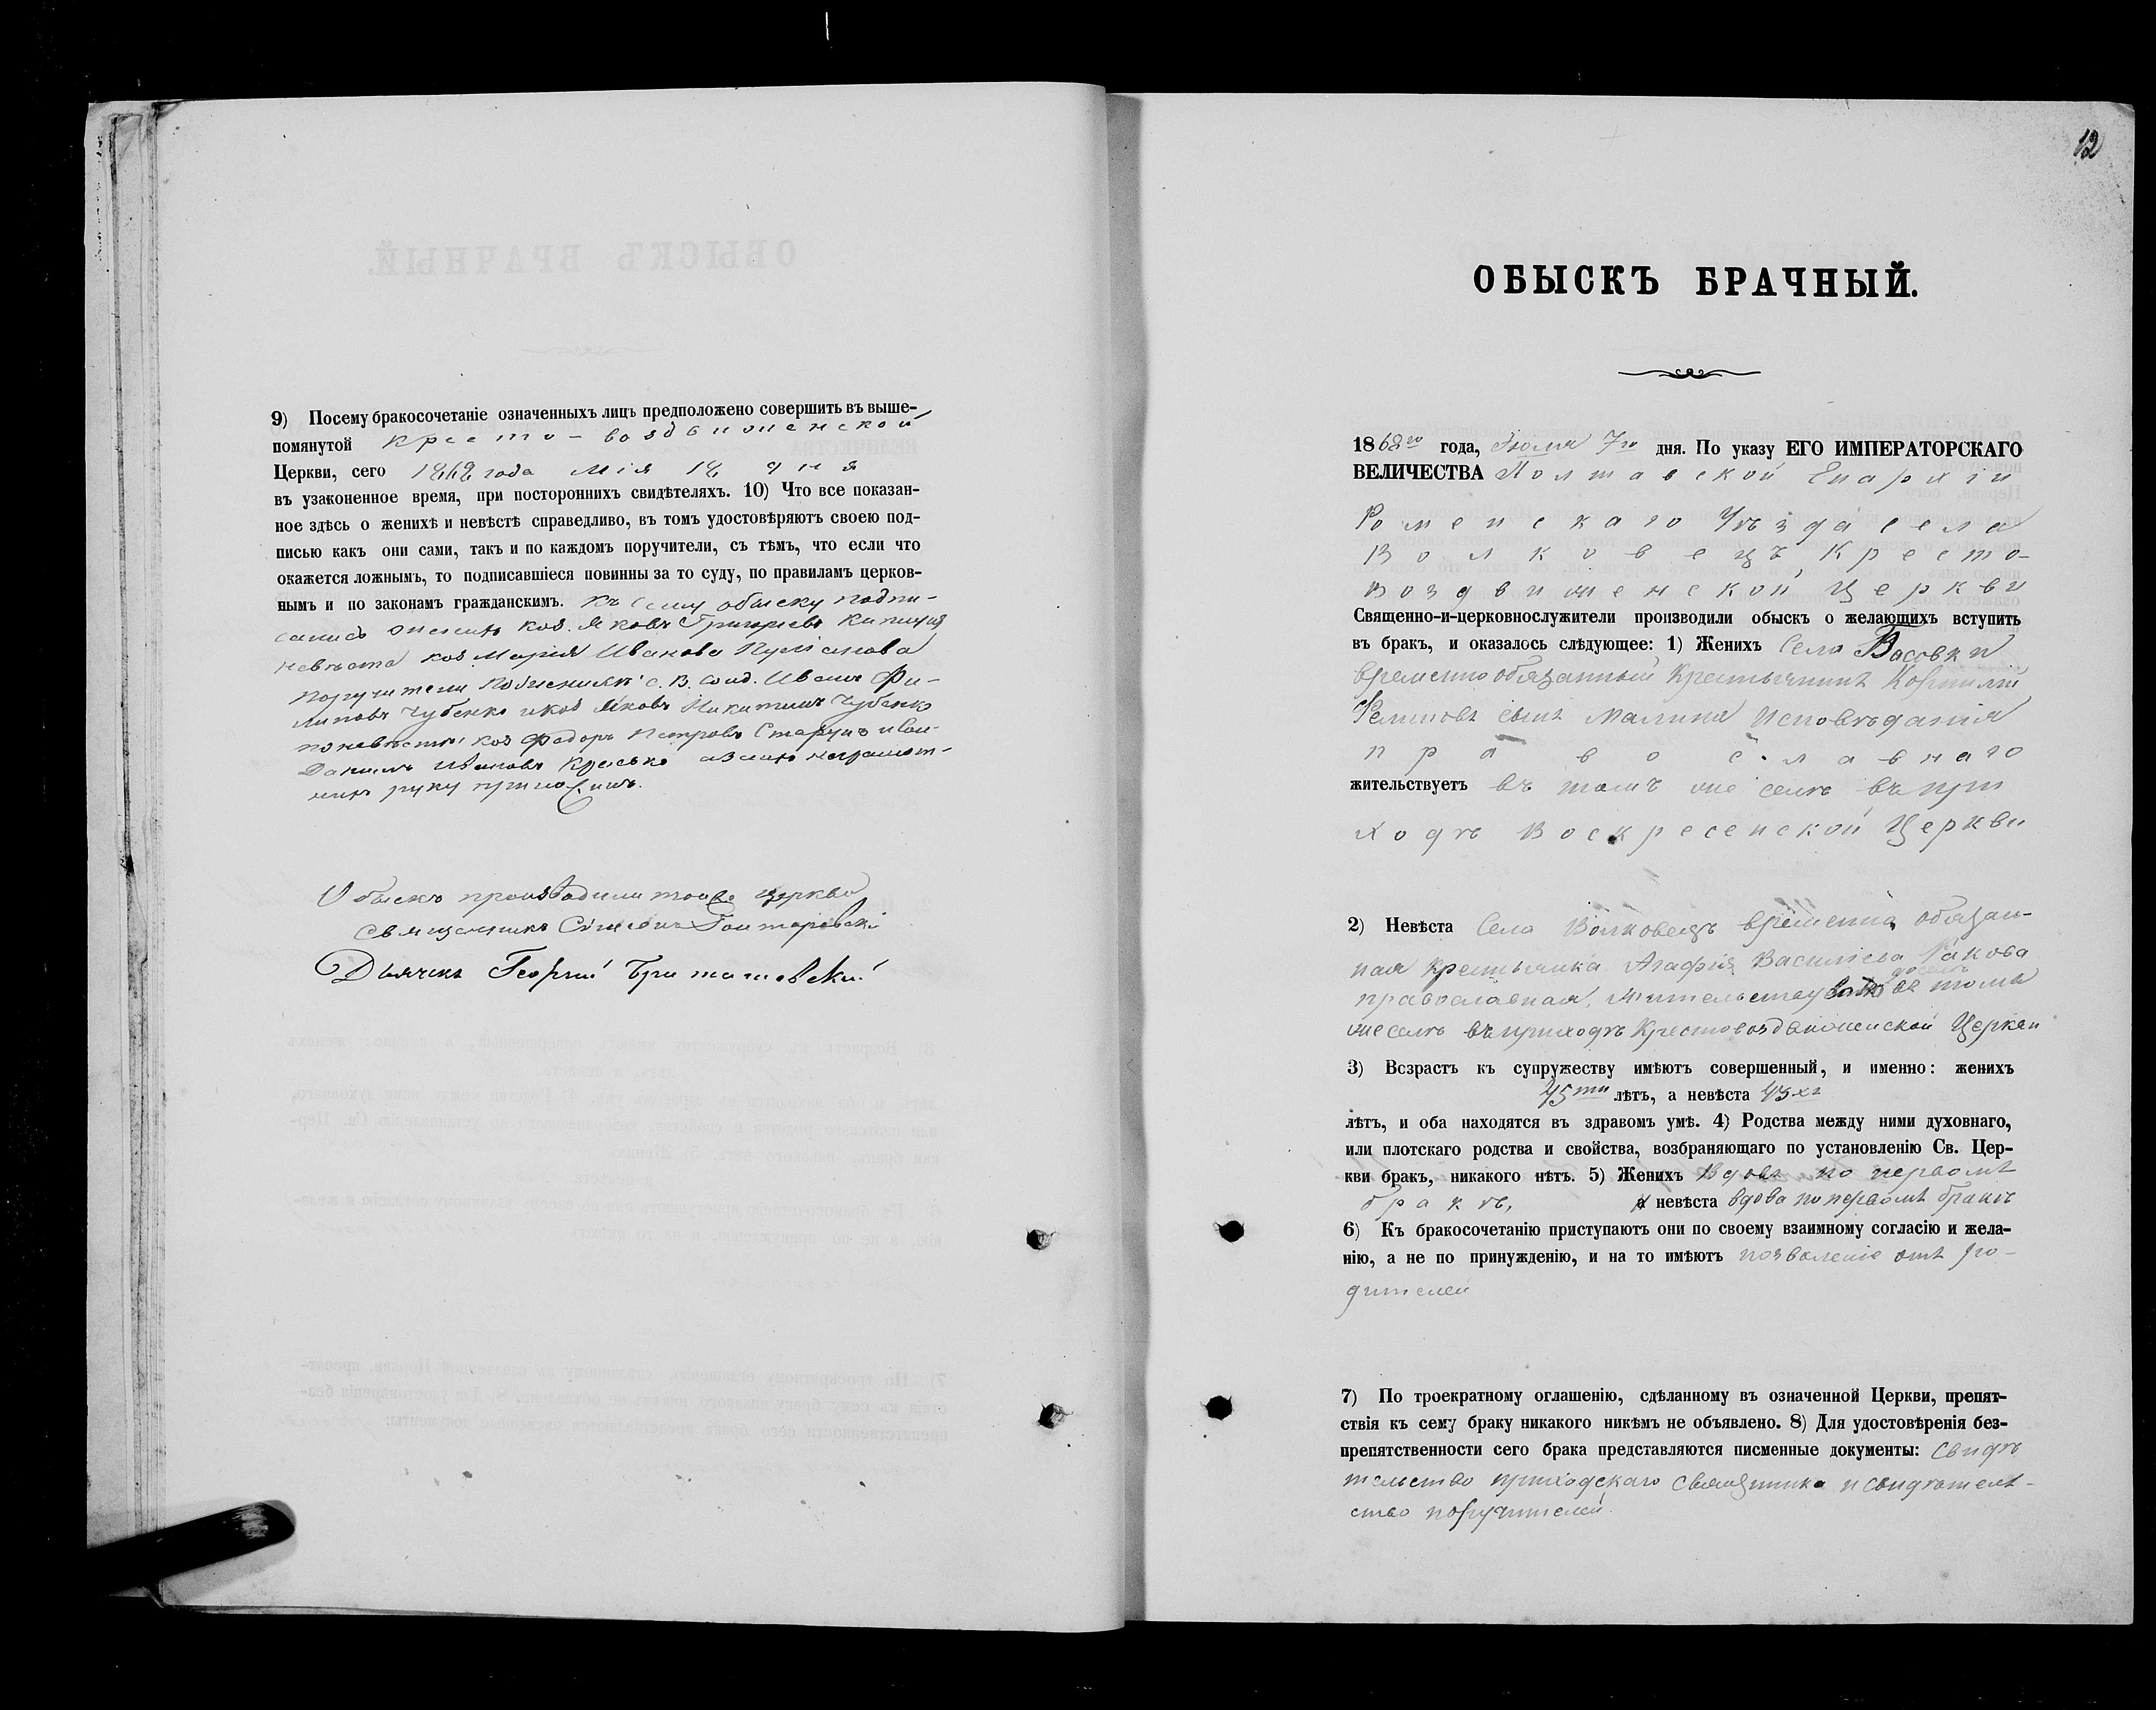 9) Посему бракосочетаніе означенныхъ лицъ предположено совершить въ выше-
помянутой Кресто-воздвиженской
Церкви, сего 1868 года мія 18 дня
въ узаконенное время, при постороннихъ свидѣтеляхъ. 10) Что все показан-
ное здѣсь о женихѣ и невѣстѣ справедливо, въ томъ удостовѣряютъ своею под-
писью какъ они сами, такъ и по каждомъ поручители, съ тѣмъ, что если что
окажется ложнымъ, то подписавшіеся повинны за то суду, по правиламъ церков-
нымъ и по законамъ гражданскимъ. Къ сему обыску подпи-
сались женихъ коз. Яковъ Григорьевъ
невѣста коз Марія Иванова
поручители по женихѣ с. В. Иванъ Фи-
липовъ Чубенко и коз Яковъ Никитинъ Чубенко
по невѣстѣ коз Федоръ Петровъ и коз
Данилъ Ивановъ а за ихъ неграмот-
ныхъ руку приложилъ.
Обыскъ производили тоей церкви
Священникъ Симеонъ
Дьячокъ Георгій
12
ОБЫСКЪ БРАЧНЫЙ.
1868го года, Іюля 7го дня. По указу ЕГО ИМПЕРАТОРСКАГО
ВЕЛИЧЕСТВА Полтавской Епархіи
Роменскаго Уѣзда села
Волковецъ, Кресто-
воздвиженской Церкви
Священно-и-церковнослужители производили обыскъ о желающихъ вступить
въ бракъ, и оказалось слѣдующее: 1) Женихъ Села Басовки
временно обязанный Крестьянинъ Корнилій
сынъ Малина исповѣданія
православнаго
жительствуетъ въ томъ же селѣ въ при
ходѣ Воскресенской Церкви
2) Невѣста Села Волковецъ временно обязан-
ная крестьянка Агафія Васильева
православная, жительствуетъ въ томъ
же селѣ въ приходѣ Крестовоздвиженской Церкви
3) Возрастъ къ супружеству имѣютъ совершенный, и именно: женихъ
45ти лѣтъ, а невѣста 43хъ
лѣтъ, и оба находятся въ здравомъ умѣ. 4) Родства между ними духовнаго,
или плотскаго родства и свойства, возбраняющаго по установленію Св. Цер-
кви бракъ, никакого нѣтъ. 5) Женихъ Вдовъ по первомъ
бракѣ, а невѣста вдова по первомъ бракѣ
6) Къ бракосочетанію приступаютъ они по своему взаимному согласію и жела-
нію, а не по принужденію, и на то имѣютъ позволеніе отъ ро-
дителей
7) По троекратному оглашенію, сдѣланному въ означенной Церкви, препят-
ствія къ сему браку никакого никѣмъ не объявлено. 8) Для удостовѣренія без-
препятственности сего брака представляются писменные документы: Свидѣ
тельство приходскаго священника и свидѣтель-
ство поручителей